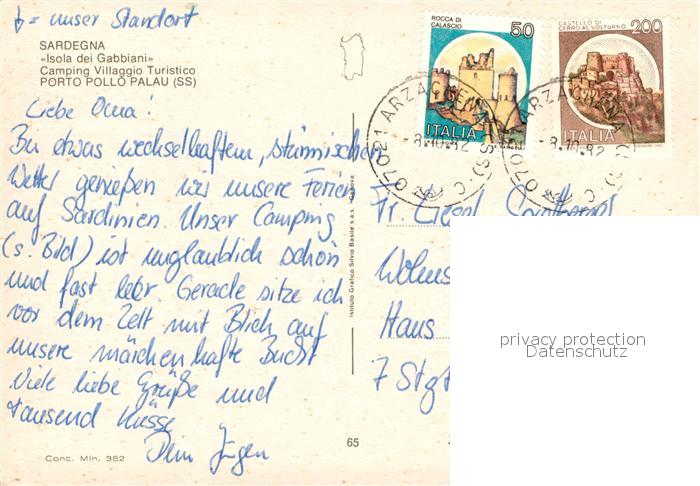 = unser Standort
SARDEGNA
«Isola dei Gabbiani»
Camping Villaggio Turistico
PORTO POLLO PALAU (SS)
Liebe Oma!
Bei etwas wechselhaftem, stürmischen
Wetter genießen wir unsere Ferien
auf Sardinien. Unser Camping
(s. Bild) ist unglaublich schön
und fast leer. Gerade sitze ich
vor dem Zelt mit Blick auf
unsere märchenhafte Bucht
Viele liebe Grüße und
tausend Küsse
Dein Jürgen
Conc. Min. 382
65
Istituto Grafico Silvio Basile s.a.s. Genova
ROCCA DI
CALASCIO
50
ITALIA
CASTELLO DI
CERRO AL VOLTURNO
200
ITALIA
07021 ARZACHENA (SS)
-8.10.82
-8.10.82
Fr. Liesel
Haus
7 Stgt
privacy protection
Datenschutz